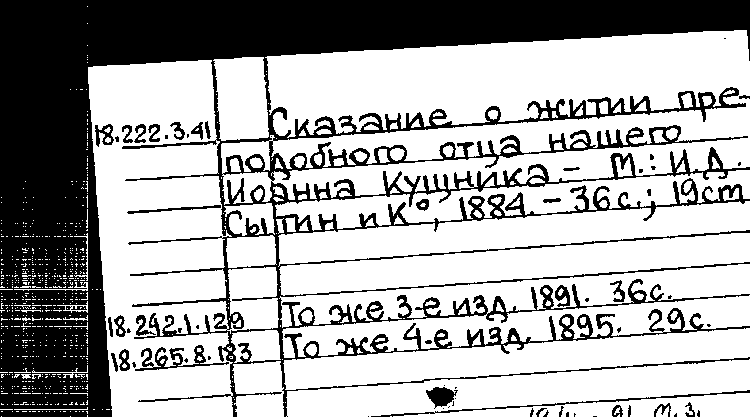 18.222.3.41 Сказание о житии пре-
подобного отца нашего
Иоанна Кущника – М.: И.Д.
Сытин и К°, 1884. – 36 с.; 19 cm
18.242.1.129 То же. 3-е изд. 1891. 36 с.
18.265.8.183 То же. 4-е изд. 1895. 29 с.